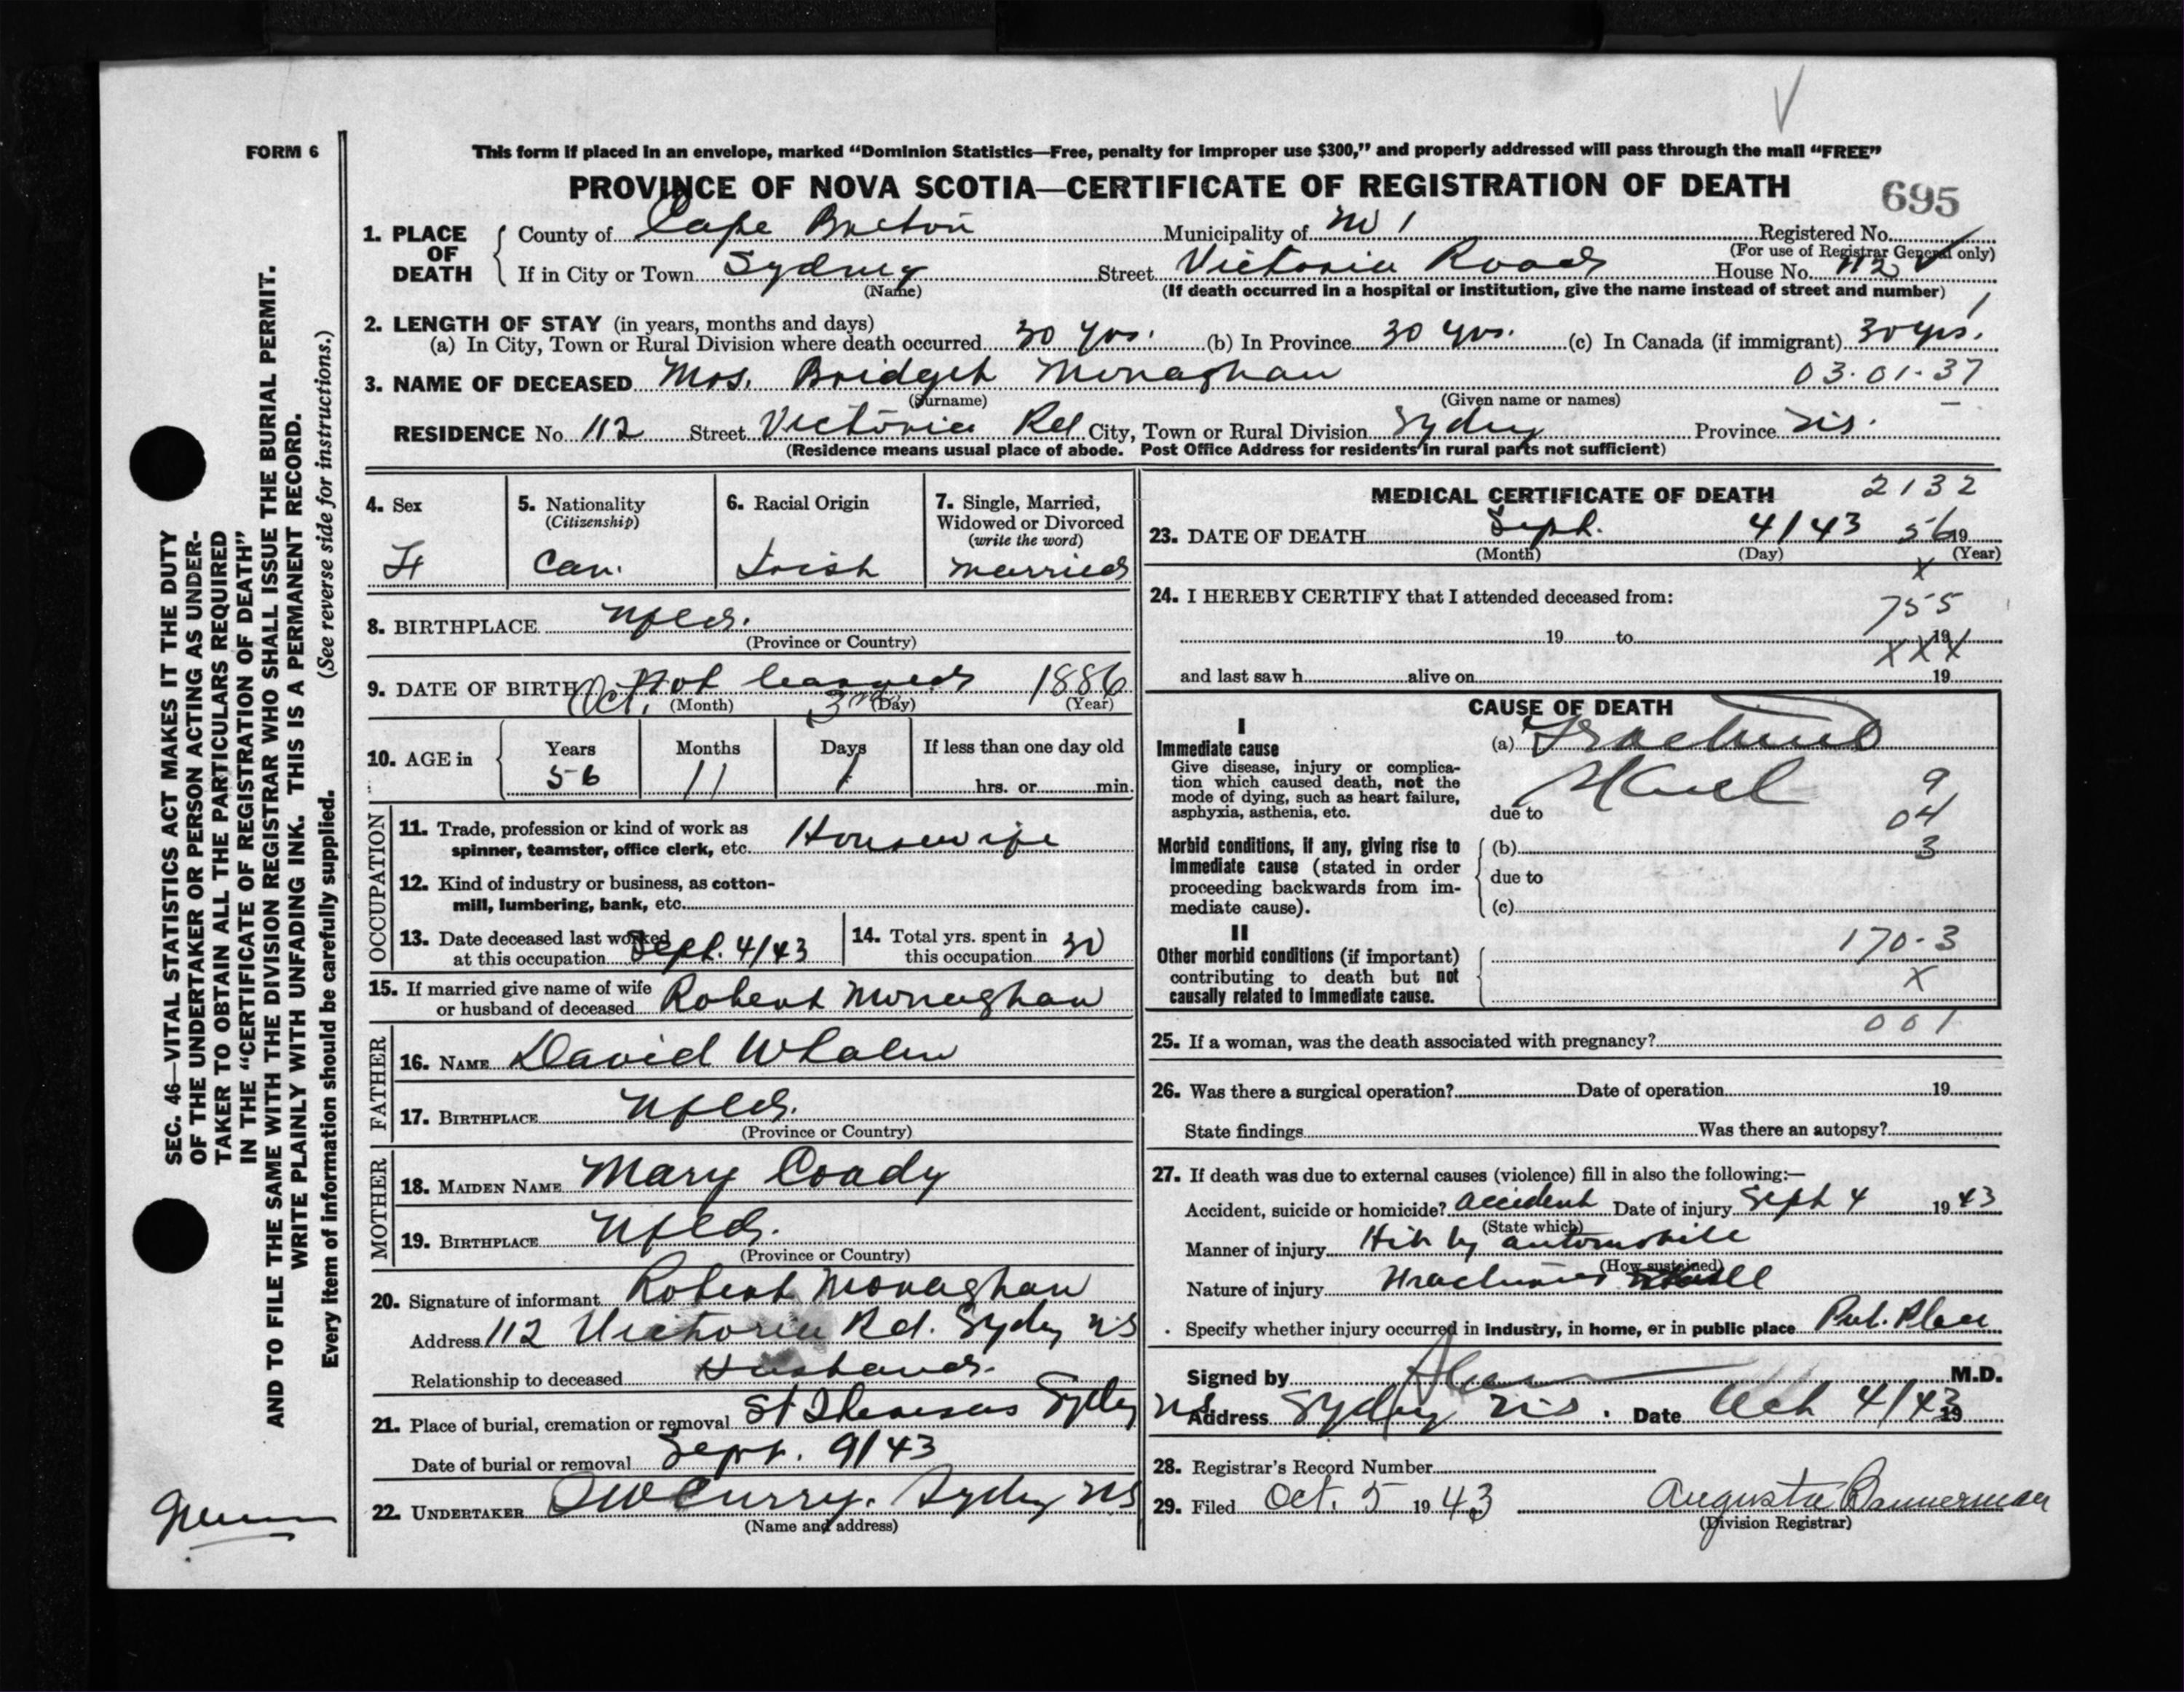 FORM 6
This form if placed in an envelope, marked “Dominion Statistics—Free, penalty for improper use $300,” and properly addressed will pass through the mail “FREE”
PROVINCE OF NOVA SCOTIA—CERTIFICATE OF REGISTRATION OF DEATH
695
1. PLACE OF DEATH
County of Cape Breton Municipality of Registered No.
(For use of Registrar General only)
If in City or Town Sydney Street Victoria Road House No. 112
(Name) (If death occurred in a hospital or institution, give the name instead of street and number)
2. LENGTH OF STAY (in years, months and days)
(a) In City, Town or Rural Division where death occurred 30 yrs. (b) In Province 30 yrs. (c) In Canada (if immigrant) 30 yrs.
3. NAME OF DECEASED Mrs. Bridget Monaghan 03.01-37
(Surname) (Given name or names)
RESIDENCE No. 112 Street Victoria Rd City, Town or Rural Division Sydney Province N.S.
(Residence means usual place of abode. Post Office Address for residents in rural parts not sufficient)
4. Sex
F
5. Nationality
(Citizenship)
Can.
6. Racial Origin
Irish
7. Single, Married,
Widowed or Divorced
(write the word)
Married
8. BIRTHPLACE Nfld.
(Province or Country)
9. DATE OF BIRTH Not learned 1886
Oct. (Month) 3rd (Day) (Year)
10. AGE in
Years Months Days If less than one day old
56 11 1 hrs. or min.
OCCUPATION
11. Trade, profession or kind of work as
spinner, teamster, office clerk, etc. Housewife
12. Kind of industry or business, as cotton-
mill, lumbering, bank, etc.
13. Date deceased last worked
at this occupation Sept. 4/43
14. Total yrs. spent in
this occupation 30
15. If married give name of wife
or husband of deceased Robert Monaghan
FATHER
16. NAME David Whalen
17. BIRTHPLACE Nfld.
(Province or Country)
MOTHER
18. MAIDEN NAME Mary Coady
19. BIRTHPLACE Nfld.
(Province or Country)
20. Signature of informant Robert Monaghan
Address 112 Victoria Rd. Sydney NS
Relationship to deceased Husband.
21. Place of burial, cremation or removal St Theresas Sydney NS
Date of burial or removal Sept. 9/43
22. UNDERTAKER Curry. Sydney NS
(Name and address)
MEDICAL CERTIFICATE OF DEATH
2132
23. DATE OF DEATH Sept. 4/43 56 19
(Month) (Day) (Year)
X
24. I HEREBY CERTIFY that I attended deceased from:
755
19 to 19
XXX
and last saw h alive on 19
CAUSE OF DEATH
I
Immediate cause
Give disease, injury or complica-
tion which caused death, not the
mode of dying, such as heart failure,
asphyxia, asthenia, etc.
(a) Fractured
Skull
due to
9
04
3
Morbid conditions, if any, giving rise to
immediate cause (stated in order
proceeding backwards from im-
mediate cause).
(b)
due to
(c)
II
Other morbid conditions (if important)
contributing to death but not
causally related to immediate cause.
170-3
X
001
25. If a woman, was the death associated with pregnancy?
26. Was there a surgical operation? Date of operation 19
State findings Was there an autopsy?
27. If death was due to external causes (violence) fill in also the following:—
Accident, suicide or homicide? accident Date of injury Sept 4 1943
(State which)
Manner of injury Hit by automobile
(How sustained)
Nature of injury Fractured skull
Specify whether injury occurred in industry, in home, or in public place Pub. Place
Signed by M.D.
Address Sydney N.S. Date Oct 4/43 19
28. Registrar's Record Number
29. Filed Oct. 5 1943 Augusta Bannerman
(Division Registrar)
SEC. 46—VITAL STATISTICS ACT MAKES IT THE DUTY
OF THE UNDERTAKER OR PERSON ACTING AS UNDER-
TAKER TO OBTAIN ALL THE PARTICULARS REQUIRED
IN THE “CERTIFICATE OF REGISTRATION OF DEATH”
AND TO FILE THE SAME WITH THE DIVISION REGISTRAR WHO SHALL ISSUE THE BURIAL PERMIT.
WRITE PLAINLY WITH UNFADING INK. THIS IS A PERMANENT RECORD.
Every item of information should be carefully supplied. (See reverse side for instructions.)